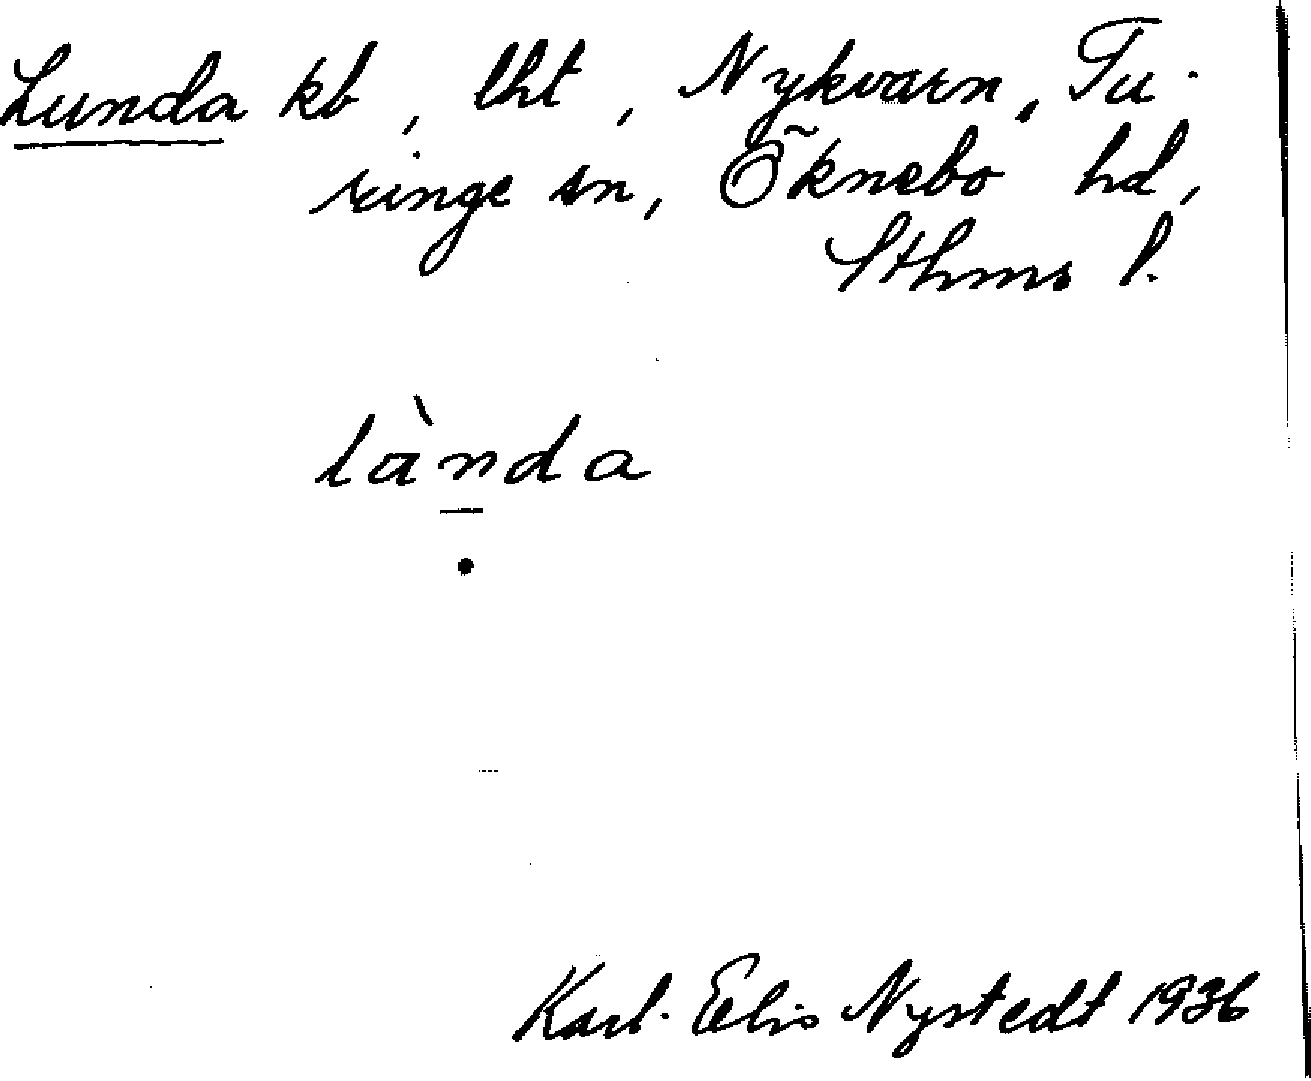 Lunda kb, lht, Nykvarn, Tu-
ringe sn, Öknebo hd,
Sthms l.
lànda
Karl-Elis Nystedt 1936